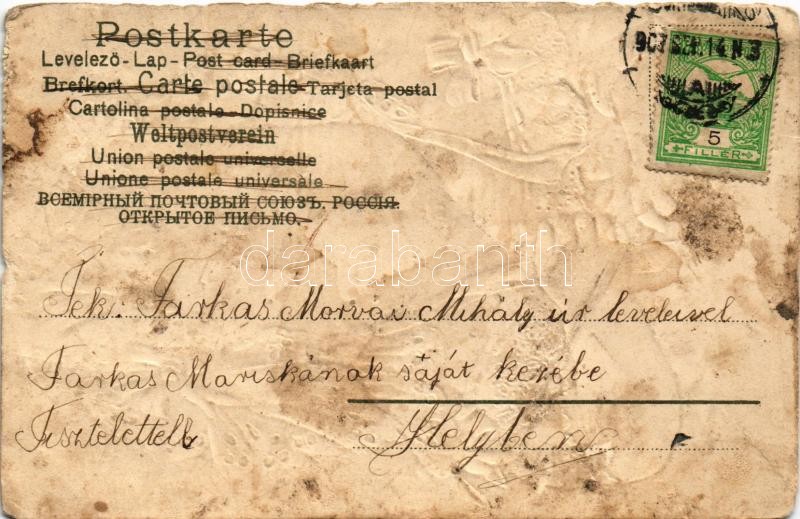 Postkarte
Levelező - Lap - Post card - Briefkaart
Brefkort. Carte postale - Tarjeta postal
Cartolina postale - Dopisnice
Weltpostverein
Union postale universelle
Unione postale universale
ВСЕМІРНЫЙ ПОЧТОВЫЙ СОЮЗЪ. РОССІЯ.
ОТКРЫТОЕ ПИСЬМО.
5
FILLÉR
darabanth
Tek: Farkas Morvai Mihály úr leveleivel
Farkas Mariskának saját kezébe
Tisztelettell
Helyben